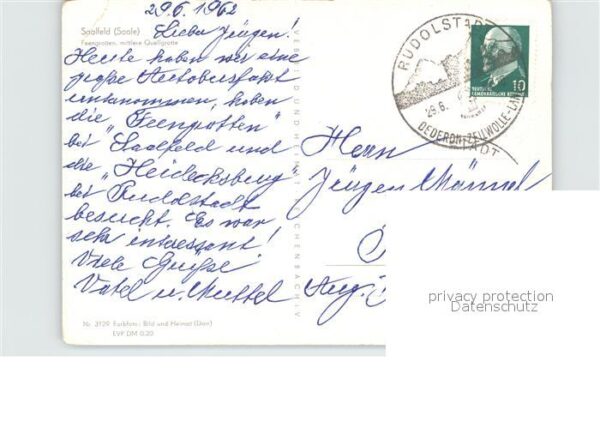 29.6.1962
Saalfeld (Saale)
Feengrotten, mittlere Quellgrotte
Lieber Jürgen!
Heute haben wir eine
große Autobusfahrt
unternommen, haben
die "Feengrotten"
bei Saalfeld und
die "Heidecksburg"
bei Rudolstadt
besucht. Es war
sehr interessant!
Viele Grüße
Vatel u. Muttel
Nr. 3929 Farbfoto: Bild und Heimat (Dorr)
EVP DM 0,20
VEB BILD UND HEIMAT REICHENBACH I.V.
RUDOLSTADT
29.6.
DEDERON-ZELLWOLLE-
STADT
DEUTSCHE
DEMOKRATISCHE REPUBLIK
10
Herrn
Jürgen Männel
Aug.
privacy protection
Datenschutz